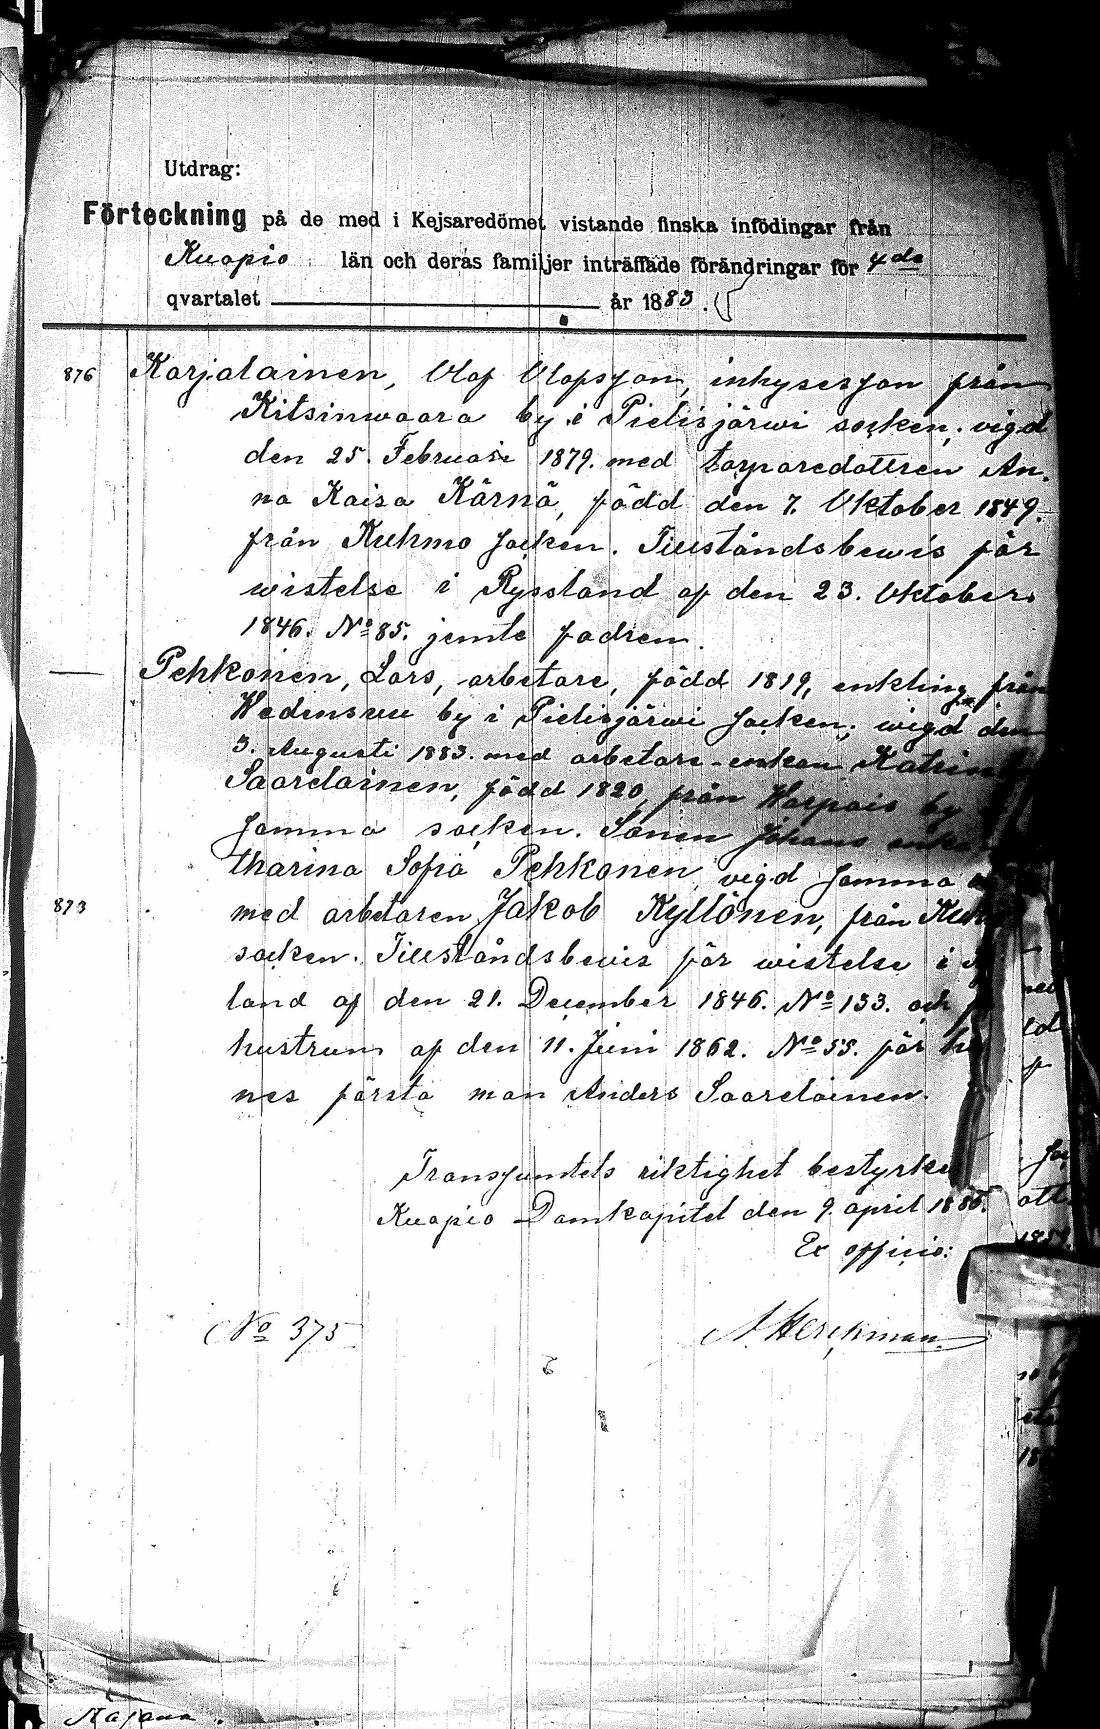 Utdrag:
Förteckning på de med i Kejsaredömet vistande finska infödingar från
Kuopio län och deras familjer inträffade förändringar för 4de
qvartalet år 1883.
876 Karjalainen, Olof Olofsson, inhysesson från
Kitsinwaara by i Pielisjärwi socken; vigd
den 25. Februari 1879. med torparedottren An-
na Kaisa Kärnä, född den 7. Oktober 1849.
från Kuhmo socken. Tillståndsbewis för
wistelse i Ryssland af den 23. Oktober
1846. No 85. jemte fadren.
— Pehkonen, Lars, arbetare, född 1819, enkling från
Wedensuu by i Pielisjärwi socken; wigd den
3. Augusti 1883. med arbetare-enkan Katrina
Saarelainen, född 1820, från by
samma socken. Sonen Johans
tharina Sofia Pehkonen vigd samma
873 med arbetaren Jakob Kyllönen, från
socken. Tillståndsbevis för wistelse i
land af den 21. December 1846. No 133. och
hustrun af den 11. Juni 1862. No 55. för
nes första man Anders Saarelainen.
Transsumtets riktighet bestyrke
Kuopio Domkapitel den 9. april 1885.
Ex officio:
No 375
Kajana